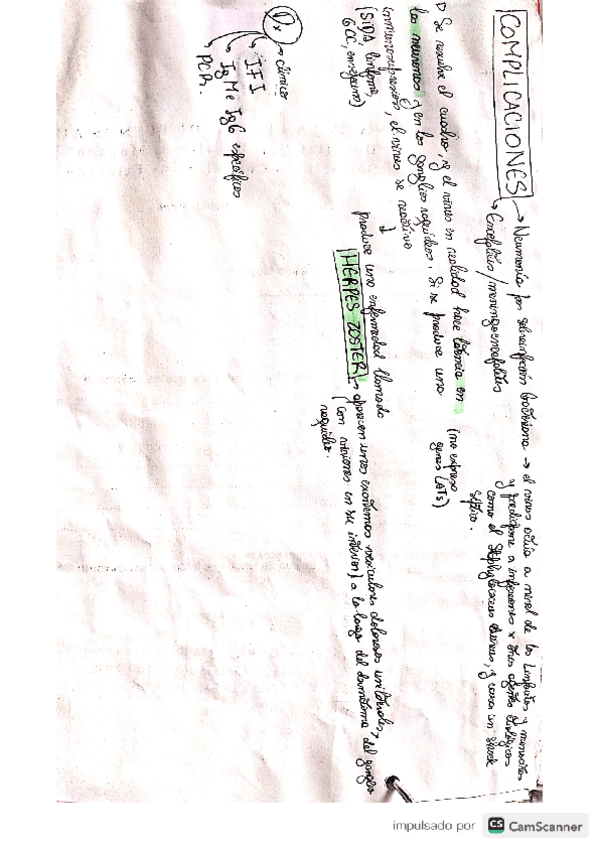 COMPLICACIONES → Neumonía por sobreinfección bacteriana → el virus actúa a nivel de los linfocitos y
y predispone a infecciones x otros agentes biológicos
como el Staphylococcus aureus, y causa un shock
séptico.
→ Encefalitis / meningoencefalitis
Se resuelve el cuadro, y el virus en realidad hace latencia en
(no expresa
genes (ATs)
las neuronas y en los ganglios raquídeos. Si se produce una
inmunosupresión, el virus se reactiva
(SIDA, linfoma,
GCC,
↓
produce una enfermedad llamada
HERPES ZOSTER → aparecen unos exantemas vesiculares dolorosos unilaterales,
(con virones en su interior) a lo largo del dermatoma del ganglio
raquídeo.
Dx → clínico
IFI
IgM e IgG específicos
PCR.
impulsado por CS CamScanner